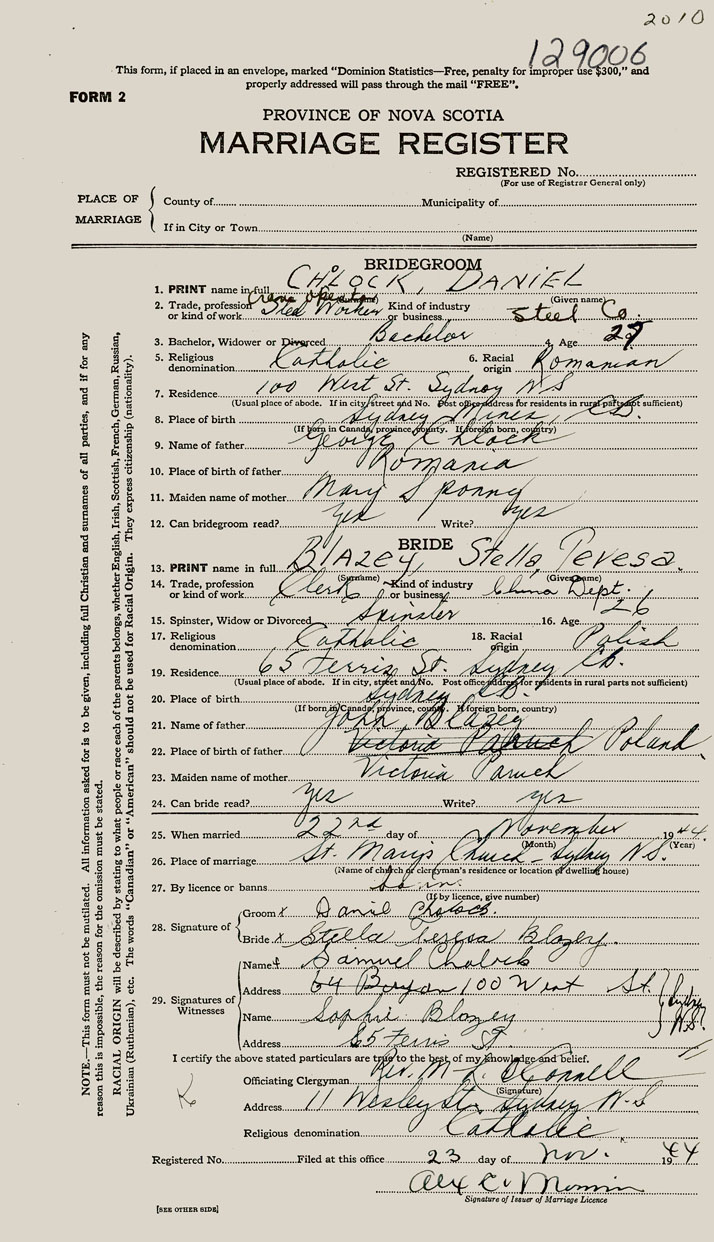 2010
129006
This form, if placed in an envelope, marked “Dominion Statistics—Free, penalty for improper use $300,” and
properly addressed will pass through the mail “FREE”.
FORM 2
PROVINCE OF NOVA SCOTIA
MARRIAGE REGISTER
REGISTERED No.
(For use of Registrar General only)
PLACE OF MARRIAGE
County of Municipality of
If in City or Town
(Name)
BRIDEGROOM
1. PRINT name in full CHOLOCK, DANIEL
(Surname) (Given name)
2. Trade, profession or kind of work Crane operator Steel Worker Kind of industry or business Steel Co.
3. Bachelor, Widower or Divorced Bachelor 4. Age 27
5. Religious denomination Catholic 6. Racial origin Romanian
7. Residence 100 West St. Sydney N S
(Usual place of abode. If in city, street and No. Post office address for residents in rural parts not sufficient)
8. Place of birth Sydney Mines, CB.
(If born in Canada, province, county. If foreign born, country)
9. Name of father George Cholock
10. Place of birth of father Romania
11. Maiden name of mother Mary Sponny
12. Can bridegroom read? Yes Write? yes
BRIDE
13. PRINT name in full BlAZEY, Stella Teresa.
(Surname) (Given name)
14. Trade, profession or kind of work Clerk Kind of industry or business China Dept.
15. Spinster, Widow or Divorced Spinster 16. Age 26
17. Religious denomination Catholic 18. Racial origin Polish
19. Residence 65 Ferris St. Sydney Cb.
(Usual place of abode. If in city, street and No. Post office address for residents in rural parts not sufficient)
20. Place of birth Sydney CB.
(If born in Canada, province, county. If foreign born, country)
21. Name of father John Blazey
22. Place of birth of father Victoria Paruch Poland
23. Maiden name of mother Victoria Paruch
24. Can bride read? Yes Write? yes
25. When married 22nd day of November 1944.
(Month) (Year)
26. Place of marriage St. Mary's Church - Sydney N.S.
(Name of church or clergyman's residence or location of dwelling house)
27. By licence or banns
(If by licence, give number)
28. Signature of Groom x Daniel Cholock.
Bride x Stella Teresa Blazey.
29. Signatures of Witnesses
Name Samuel Cholock
Address 64 100 West St. Sydney N.S.
Name Sophie Blazey
Address 65 Ferris St.
I certify the above stated particulars are true to the best of my knowledge and belief.
Officiating Clergyman Rev. M. O'Connell
(Signature)
Address 11 Wesley St. Sydney N-S
Religious denomination Catholic
Registered No. Filed at this office 23 day of Nov. 1944
Alex C.
Signature of Issuer of Marriage Licence
[SEE OTHER SIDE]
NOTE.—This form must not be mutilated. All information asked for is to be given, including full Christian and surnames of all parties, and if for any
reason this is impossible, the reason for the omission must be stated.
RACIAL ORIGIN will be described by stating to what people or race each of the parents belongs, whether English, Irish, Scottish, French, German, Russian,
Ukrainian (Ruthenian), etc. The words “Canadian” or “American” should not be used for Racial Origin. They express citizenship (nationality).